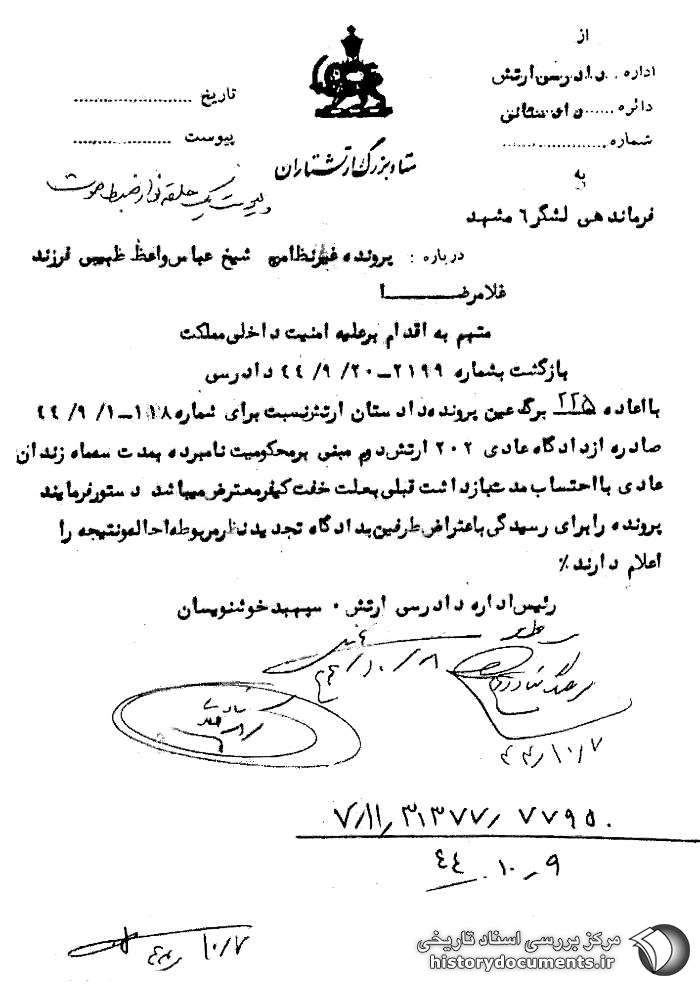 از
اداره دادرسی ارتش
دائره دادستانی
شماره
تاریخ
پیوست
ستاد بزرگ ارتشتاران
پیوست یک حلقه نوار ضبط صوت
به
فرماندهی لشگر ٦ مشهد
درباره : پرونده غیرنظامی شیخ عباس واعظ طبسی فرزند
غلامرضا
متهم به اقدام برعلیه امنیت داخلی مملکت
بازگشت بشماره ۲۱۹۹-۲۰/ ۹/ ٤٤ دادرسی
با اعاده ۲۲۵ برگ عین پرونده دادستان ارتش نسبت برای شماره ۱۱۸-۱/ ۹/ ٤٤
صادره از دادگاه عادی ۲۰۲ ارتش دوم مبنی برمحکومیت نامبرده بمدت سه ماه زندان
عادی با احتساب مدت بازداشت قبلی بعلت خفت کیفر معترض میباشد دستور فرمایند
پرونده را برای رسیدگی باعتراض طرفین بدادگاه تجدید نظر مربوطه احاله و نتیجه را
اعلام دارند٪
رئیس اداره دادرسی ارتش ۰ سپهبد خوشنویسان
٤٤/۱۰/۸
٤٤/۱۰/۷
۷/۱۱/۳۱۳۷۷/ ۷۷۹۵۰
٤٤/۱۰/۹
٤٤/۱۰/۷
مرکز بررسی اسناد تاریخی
historydocuments.ir